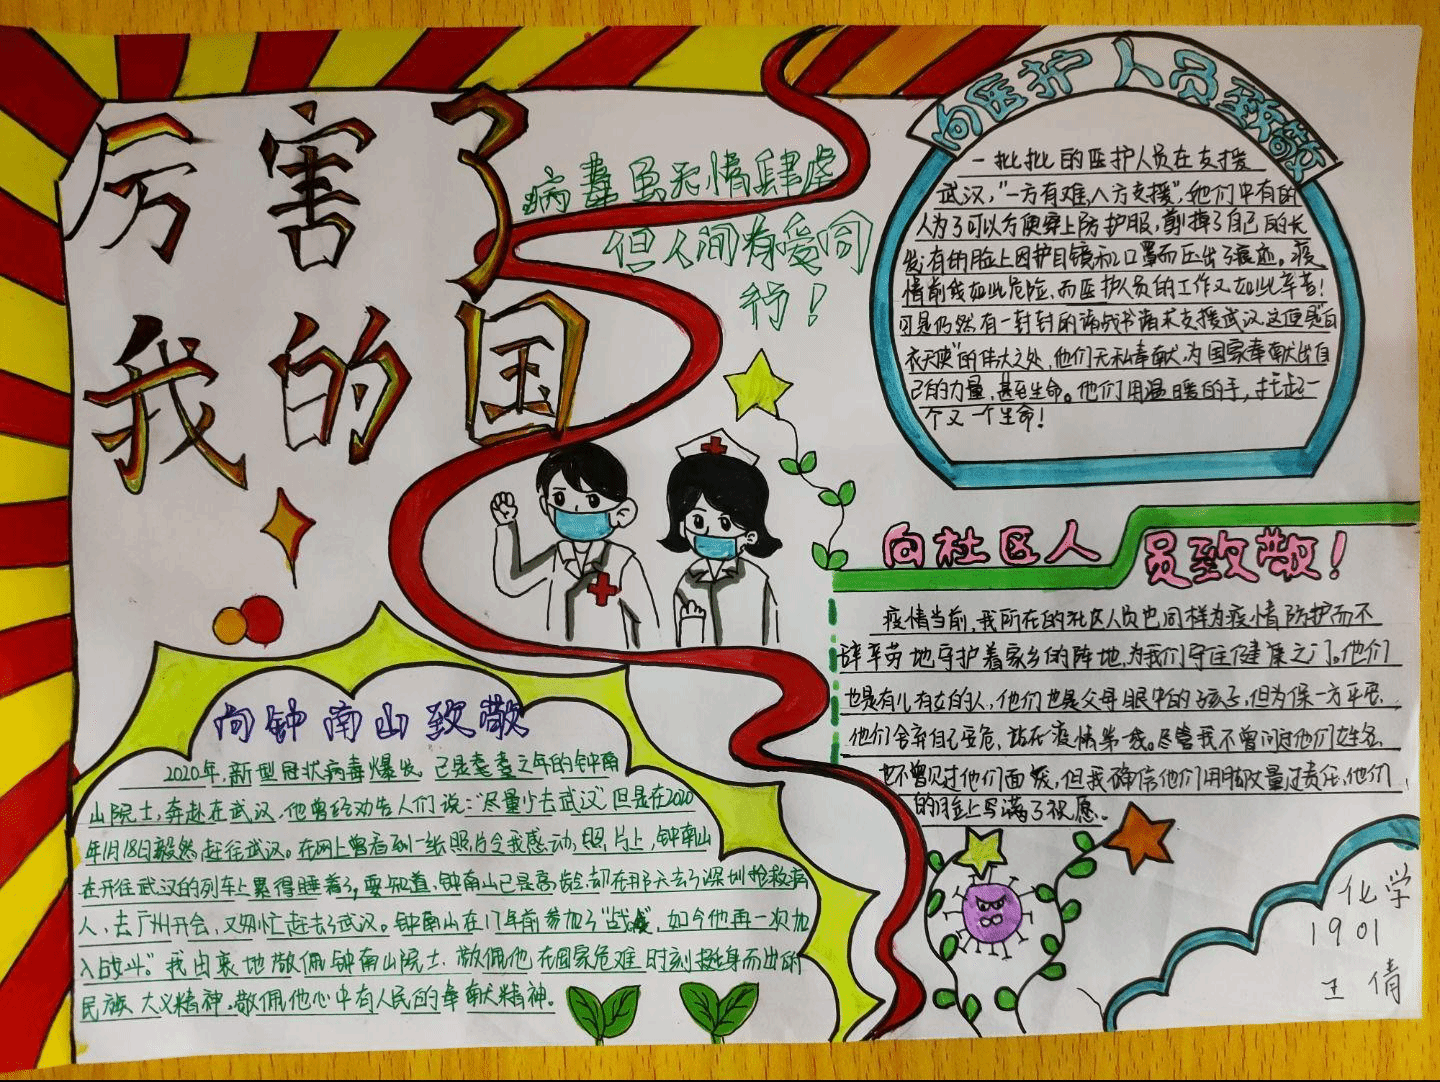 厉害了
我的国
病毒虽无情肆虐
但人间有爱同
行！
向医护人员致敬
一批批的医护人员在支援
武汉，“一方有难，八方支援”，他们中有的
人为了可以方便穿上防护服，剪掉了自己的长
发，有的脸上因护目镜和口罩而压出了痕迹。疫
情前线如此危险，而医护人员的工作又如此辛苦！
可是仍然有一封封的请战书请求支援武汉，这便是“白
衣天使”的伟大之处，他们无私奉献，为国家奉献出自
己的力量，甚至生命。他们用温暖的手，托起一
个又一个生命！
向社区人员致敬！
疫情当前，我所在的社区人员也同样为疫情防护而不
辞辛劳地守护着家乡的阵地，为我们守住健康之门。他们
也是有儿有女的人，他们也是父母眼中的孩子，但为保一方平安，
他们舍弃自己安危，站在疫情第一线。尽管我不曾问过他们姓名，
也不曾见过他们面庞，但我确信他们用脚丈量过责任，他们
的脸上写满了祝愿。
向钟南山致敬
2020年，新型冠状病毒爆发。已是耄耋之年的钟南
山院士，奔赴在武汉，他曾经劝告人们说：“尽量少去武汉”，但是在2020
年1月18日毅然赶往武汉。在网上曾看到一张照片令我感动，照片上，钟南山
在开往武汉的列车上累得睡着了，要知道，钟南山已是高龄，却在那天去了深圳抢救病
人，去广州开会，又匆忙赶去了武汉。钟南山在17年前参加了“战疫”，如今他再一次加
入战斗。”我由衷地敬佩钟南山院士，敬佩他在国家危难时刻挺身而出的
民族大义精神，敬佩他心中有人民的奉献精神。
化学
1901
王倩